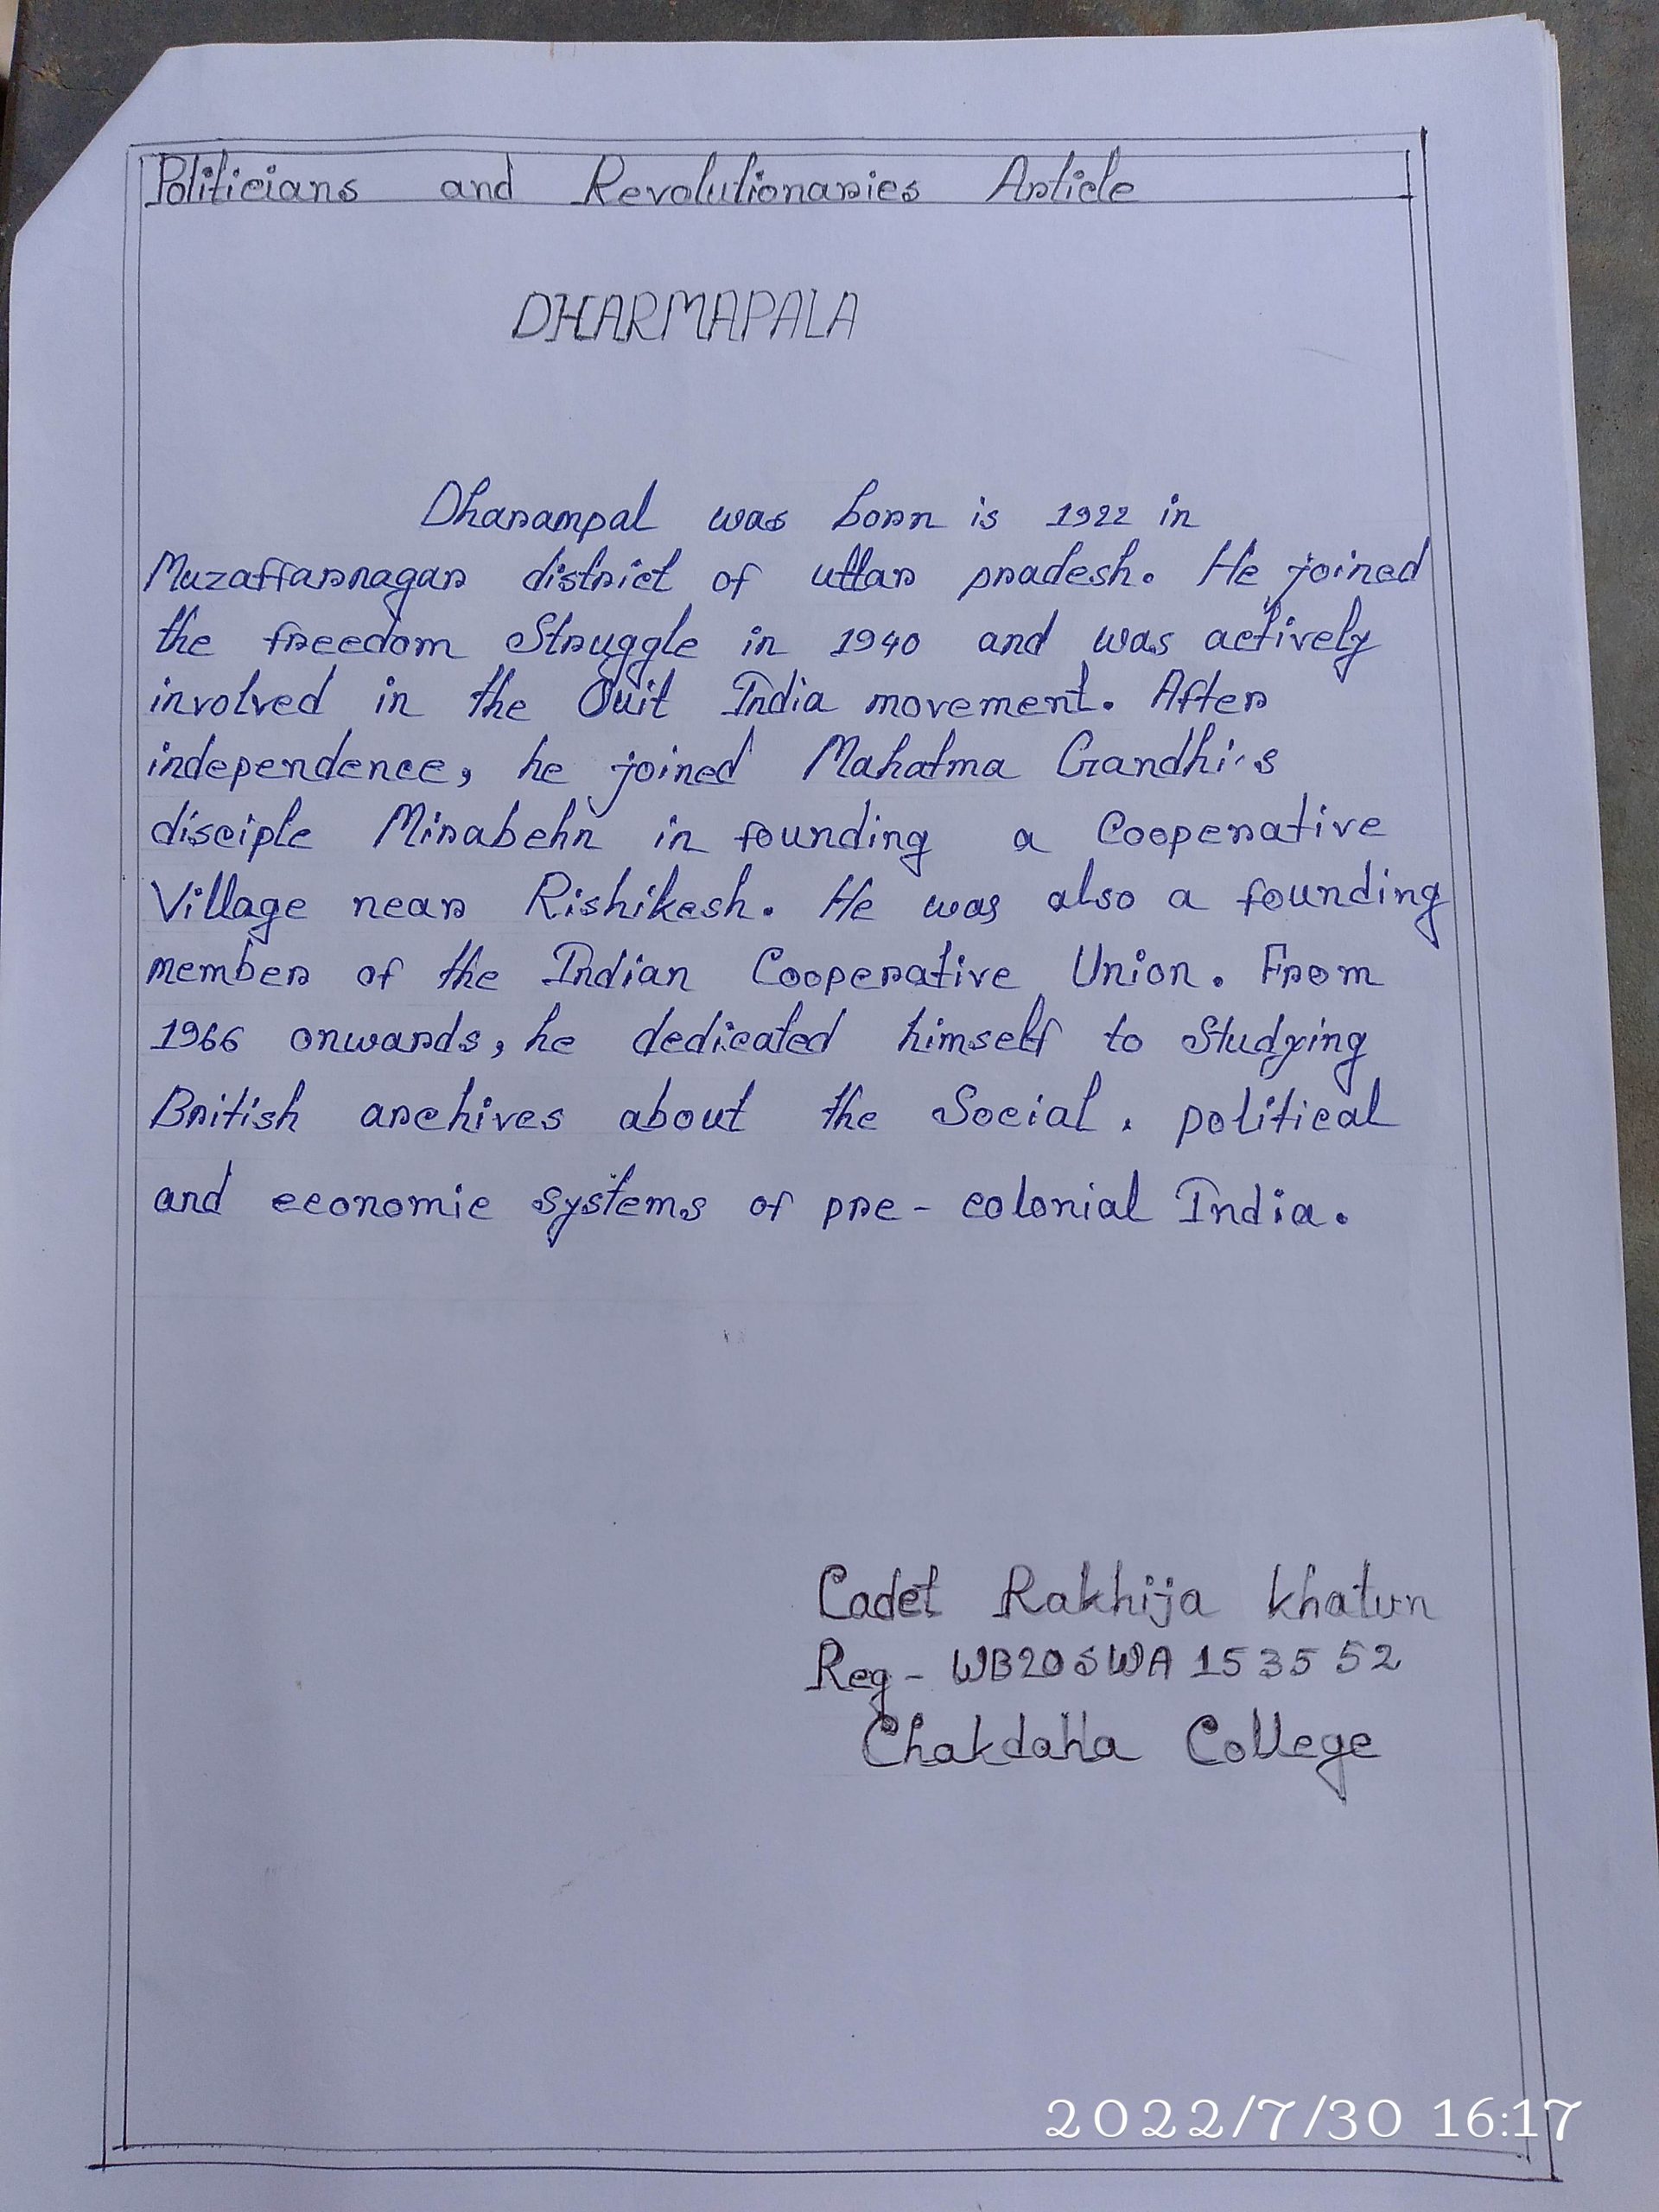 Politicians and Revolutionaries Article
DHARMAPALA
Dharampal was born is 1922 in
Muzaffarnagar district of uttar pradesh. He joined
the freedom Struggle in 1940 and was actively
involved in the Quit India movement. After
independence, he joined Mahatma Gandhi's
disciple Mirabehn in founding a Cooperative
Village near Rishikesh. He was also a founding
member of the Indian Cooperative Union. From
1966 onwards, he dedicated himself to Studying
British archives about the Social, political
and economic systems of pre-colonial India.
Cadet Rakhija Khatun
Reg - WB20SWA153552
Chakdaha College
2022/7/30 16:17